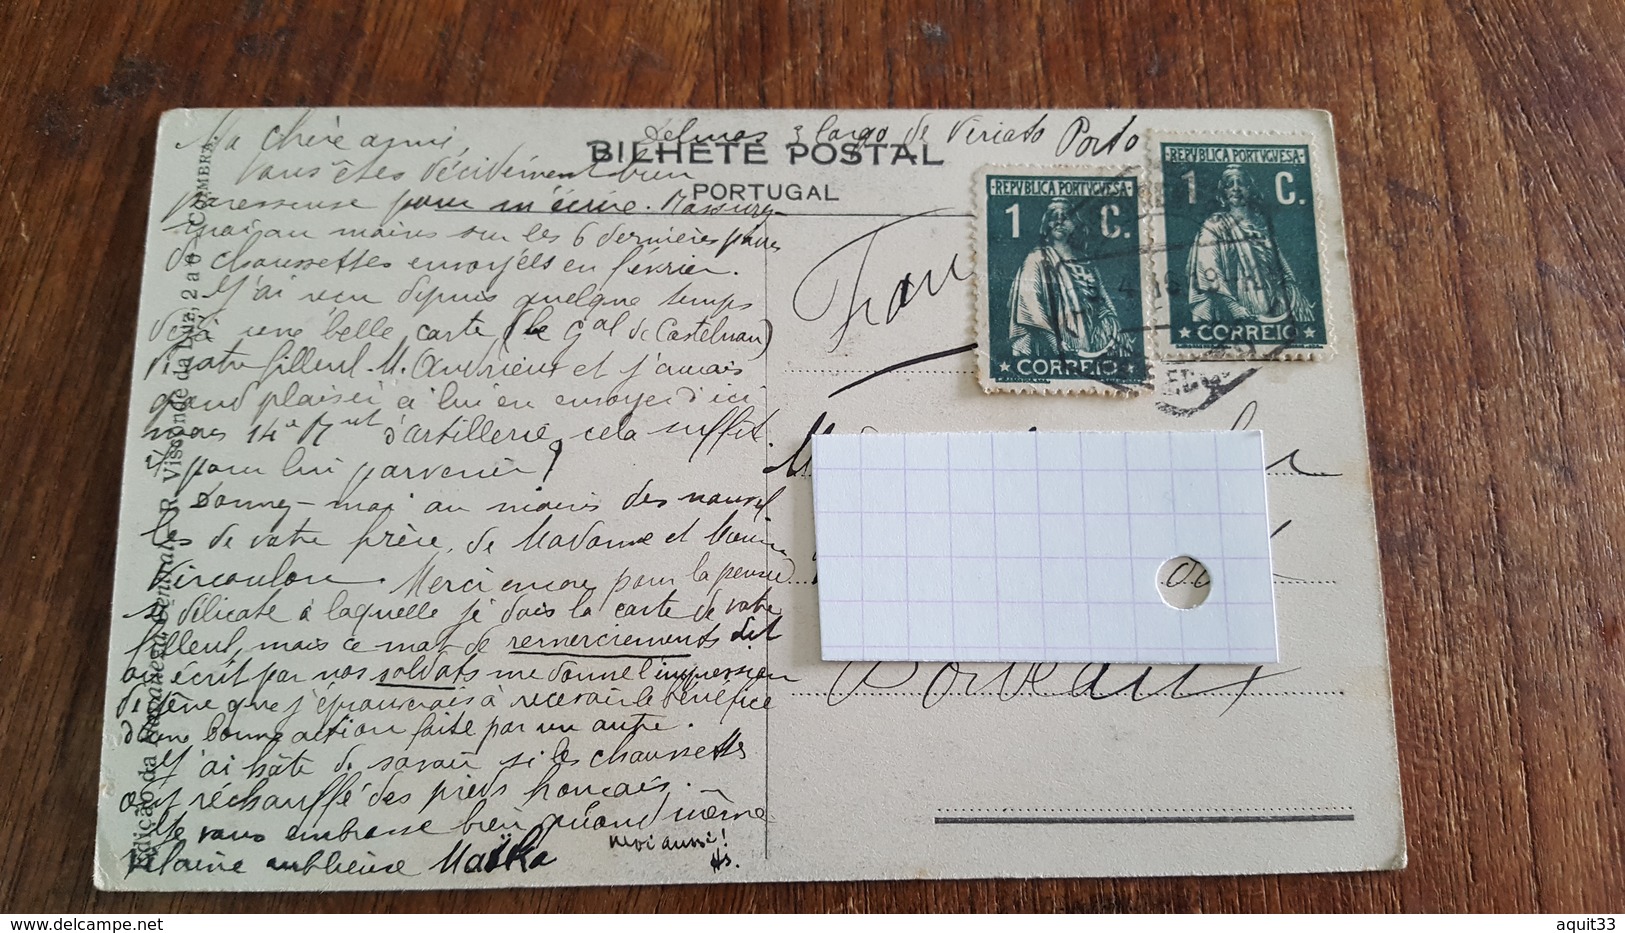 Delmas 3 largo de Viriato Porto
BILHETE POSTAL
PORTUGAL
Ma chère amie,
Vous êtes décidément bien
paresseuse pour m'écrire. Rassurez-
moi au moins sur les 6 dernières paires
de chaussettes envoyées en février.
J'ai reçu depuis quelque temps
déjà une belle carte (le Gal de Castelnau)
de votre filleul M. Andrieux et j'aurais
grand plaisir à lui en envoyer d'ici
mais 14e Rgnt d'artillerie, cela suffit-
il pour lui parvenir?
Donnez-moi au moins des nouvel
les de votre frère, de Madame et
Merci encore pour la pensée
si délicate à laquelle je dois la carte de votre
filleul, mais ce mot de remerciements dit
ou écrit par nos soldats me donne l'impression
de gêne que j'éprouverais à recevoir le bénéfice
d'une bonne action faite par un autre.
J'ai hâte de savoir si les chaussettes
ont réchauffé des pieds français.
Je vous embrasse bien quand même
vilaine oublieuse Maïka
moi aussi!
Hs.
REPVBLICA PORTVGVESA
1 C.
CORREIO
REPVBLICA PORTVGVESA
1 C.
CORREIO
France
de
Bordeaux
R. Visconde da Luz, 2 a 6 - COIMBRA.
aquit33